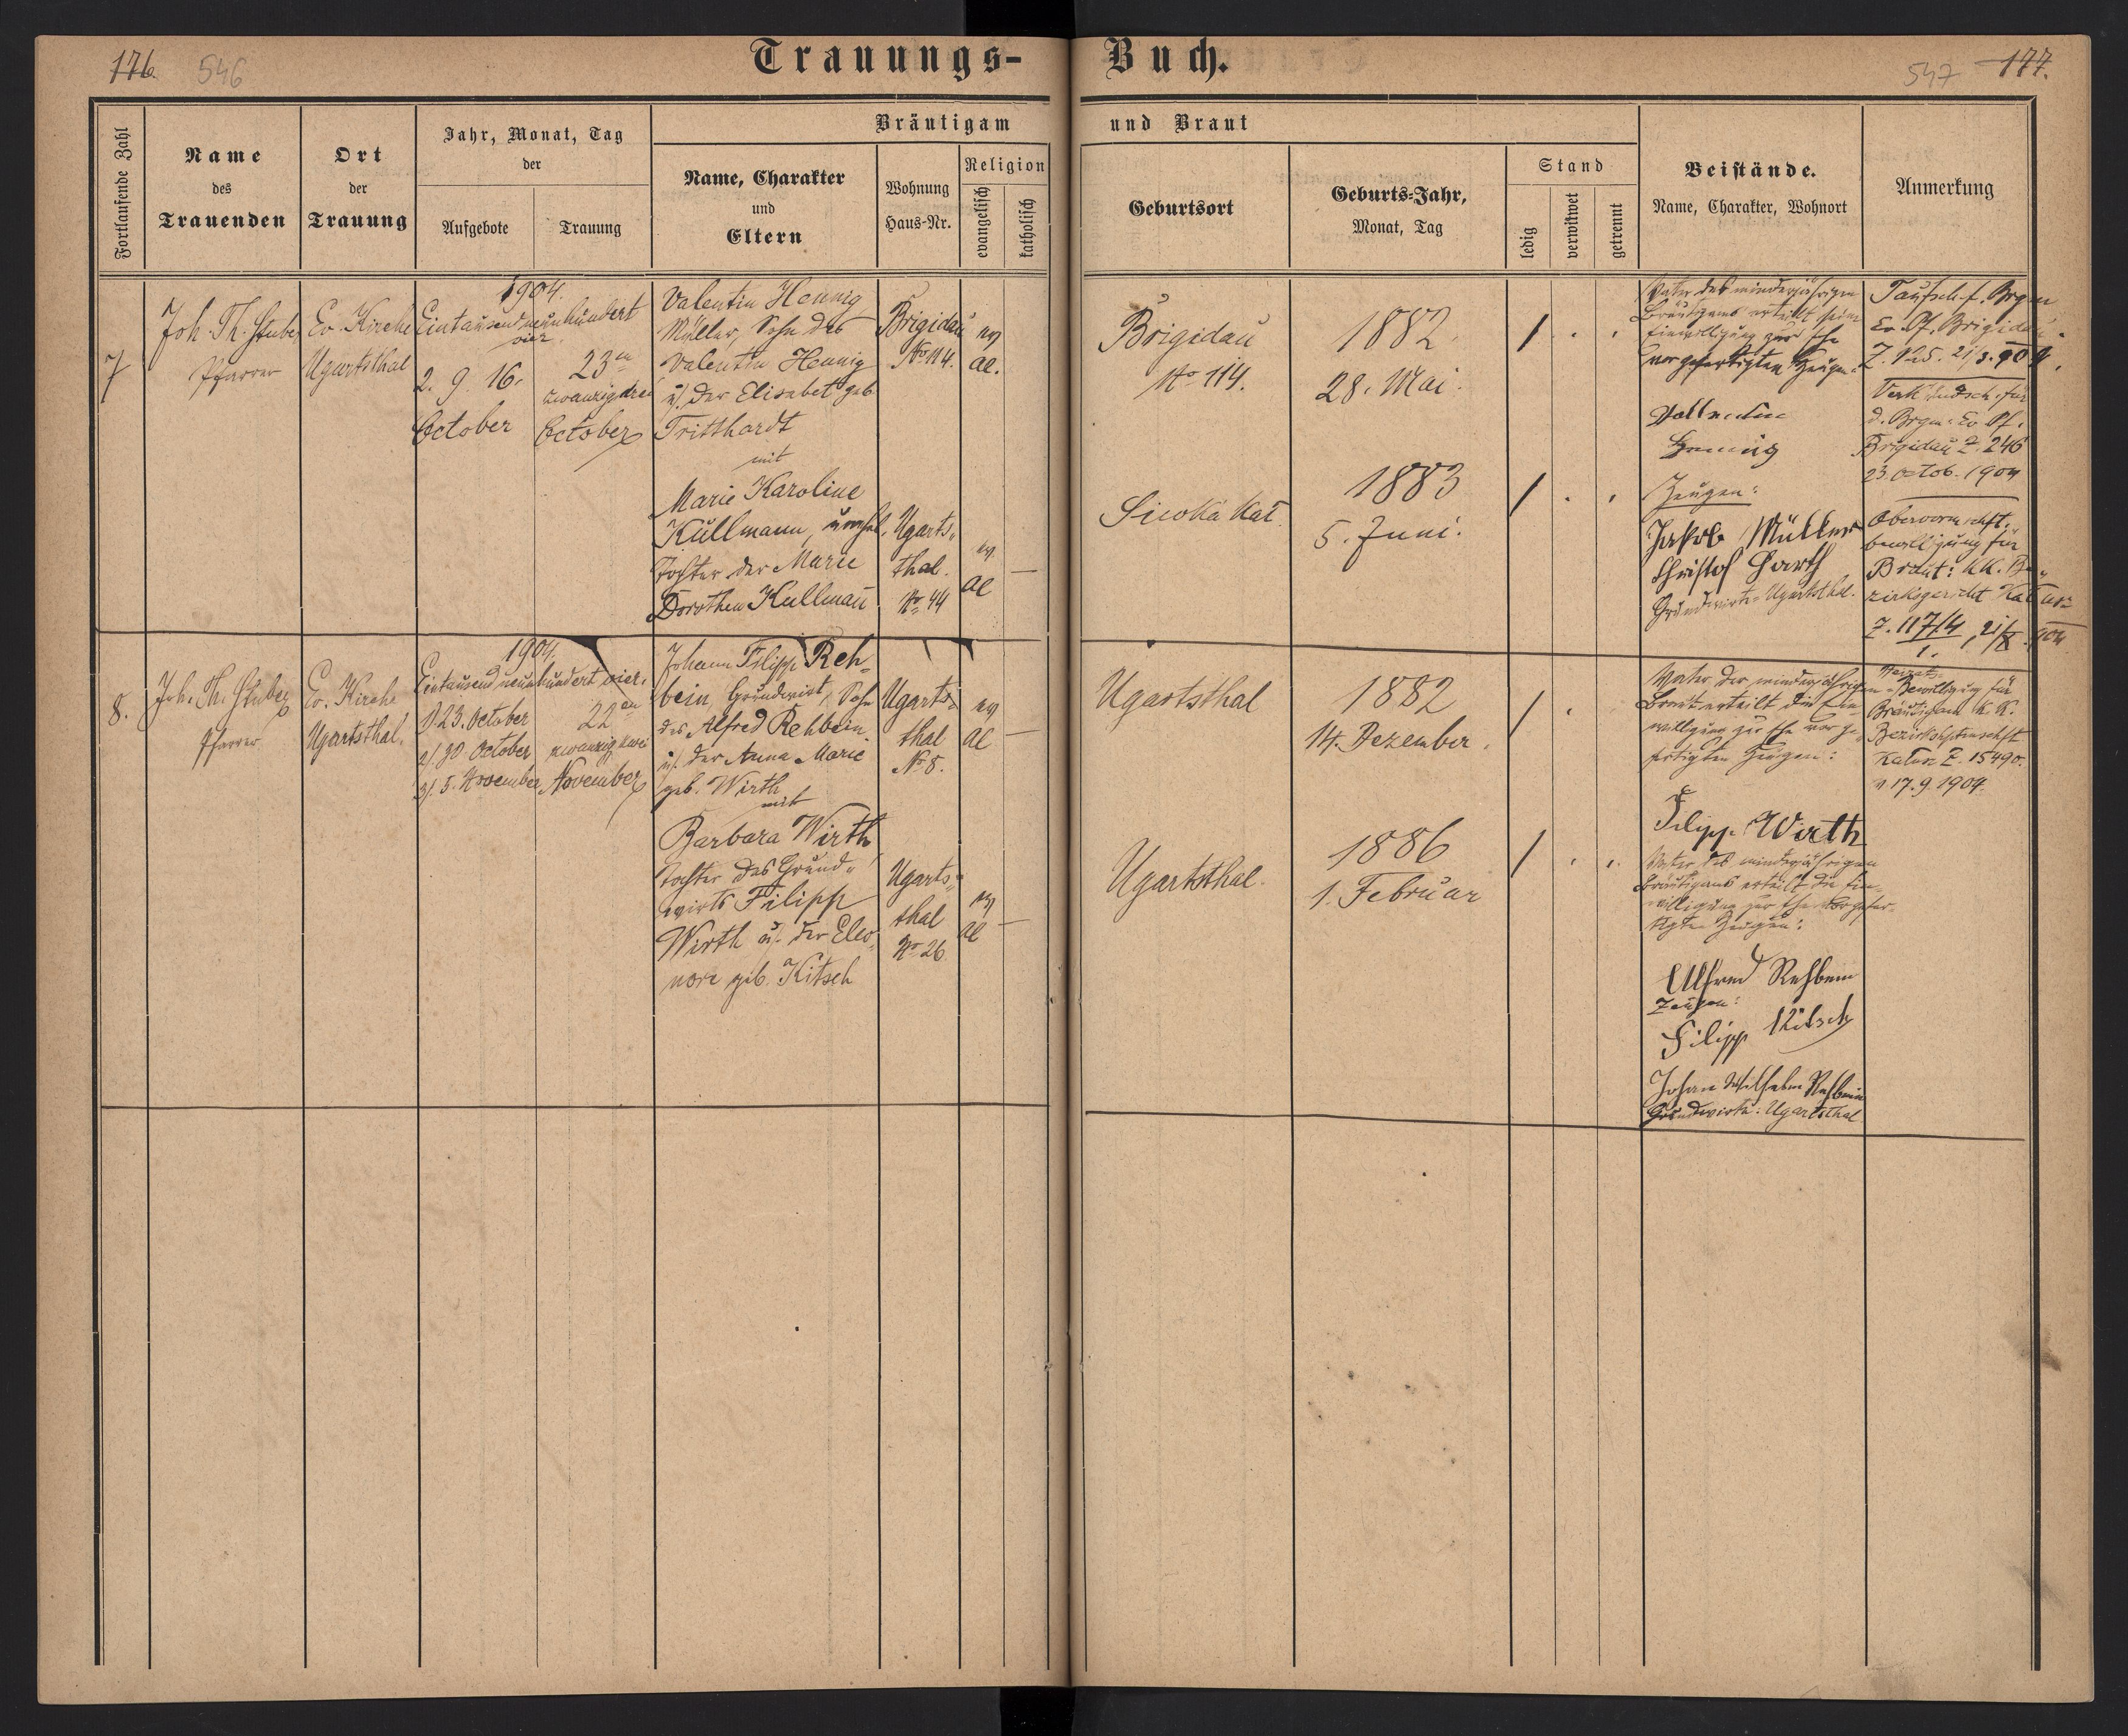 176. 546
Trauungs-
Buch.
547 177.
Fortlaufende Zahl
Name
des
Trauenden
Ort
der
Trauung
Jahr, Monat, Tag
der
Aufgebote
Trauung
Bräutigam
Name, Charakter
und
Eltern
Wohnung
Haus-Nr.
Religion
evangelisch
katholisch
und Braut
Geburtsort
Geburts-Jahr,
Monat, Tag
Stand
ledig
verwitwet
getrennt
Beistände.
Name, Charakter, Wohnort
Anmerkung
7
Joh. Th. Stuber
Pfarrer
Ev. Kirche
Ugartsthal
1904.
Eintausend neunhundert
vier.
2. 9. 16.
October
23en
zwanzigdrei
October
Valentin Hennig
Müller, Sohn des
Valentin Hennig
u. der Elisabet geb.
Tritthardt
mit
Marie Karoline
Kullmann, unehel.
Tochter der Marie
Dorothea Kullmann
Brigidau
No 114.
ev
ae.
Ugarts„
thal.
No 44
ev
ae —
Brigidau
No 114.
1882.
28. Mai.
/ . .
Siwka kał.
1883
5. Juni.
/ . .
Vater des minderjährigen
Bräutigams erteilt seine
Einwilligung zur Ehe
vor gefertigten Zeugen:
Vallentin
Hennig
Zeugen:
Jakob Müller
Christof Harth
Grundwirte Ugartsthal.
Taufsch. f. Brgm
Ev. Pf. Brigidau
Z. 125. 21/3. 904.
Verk. Sch. für
d. Brgm: Ev. Pf.
Brigidau Z. 246
23. Octob. 1904
Obervormschft.
bewilligung für
Braut: kk. Be„
zirksgericht Kałusz
Z. 117/4 21/X 904
1.
8.
Joh. Th. Stuber
Pfarrer
Ev. Kirche
Ugartsthal.
1904.
Eintausend neunhundert vier.
1) 23. October
2). 30 October
3). 5. November
22en
zwanzig zwei
November
Johann Filipp Reh-
bein, Grundwirt, Sohn
des Alfred Rehbein
u. der Anna Marie
geb. Wirth
mit
Barbara Wirth
Tochter des Grund„
wirts Filipp
Wirth u. der Eleo„
nore geb. Kitsch
Ugarts„
thal
No 8.
ev
ae —
Ugarts„
thal
No 26
ev
ae —
Ugartsthal
1882
14. Dezember.
/ .
Ugartsthal.
1886
1. Februar
/ . .
Vater der minderjährigen
Braut erteilt die Ein„
willigung zur Ehe vor ge„
fertigten Zeugen:
Filipp Wirth
Vater des minderjährigen
Bräutigams erteilt die Ein„
willigung zur Ehe vor gefer„
tigten Zeugen:
Alfred Rehbein
Zeugen:
Filipp Kitsch
Johan Wilhelm Rehbein
Grundwirte: Ugartsthal
Heirat„
Bewilligung für
Bräutigam K. K.
Bezirkshptmschft
Kałusz Z. 15490.
v 17. 9. 1904.